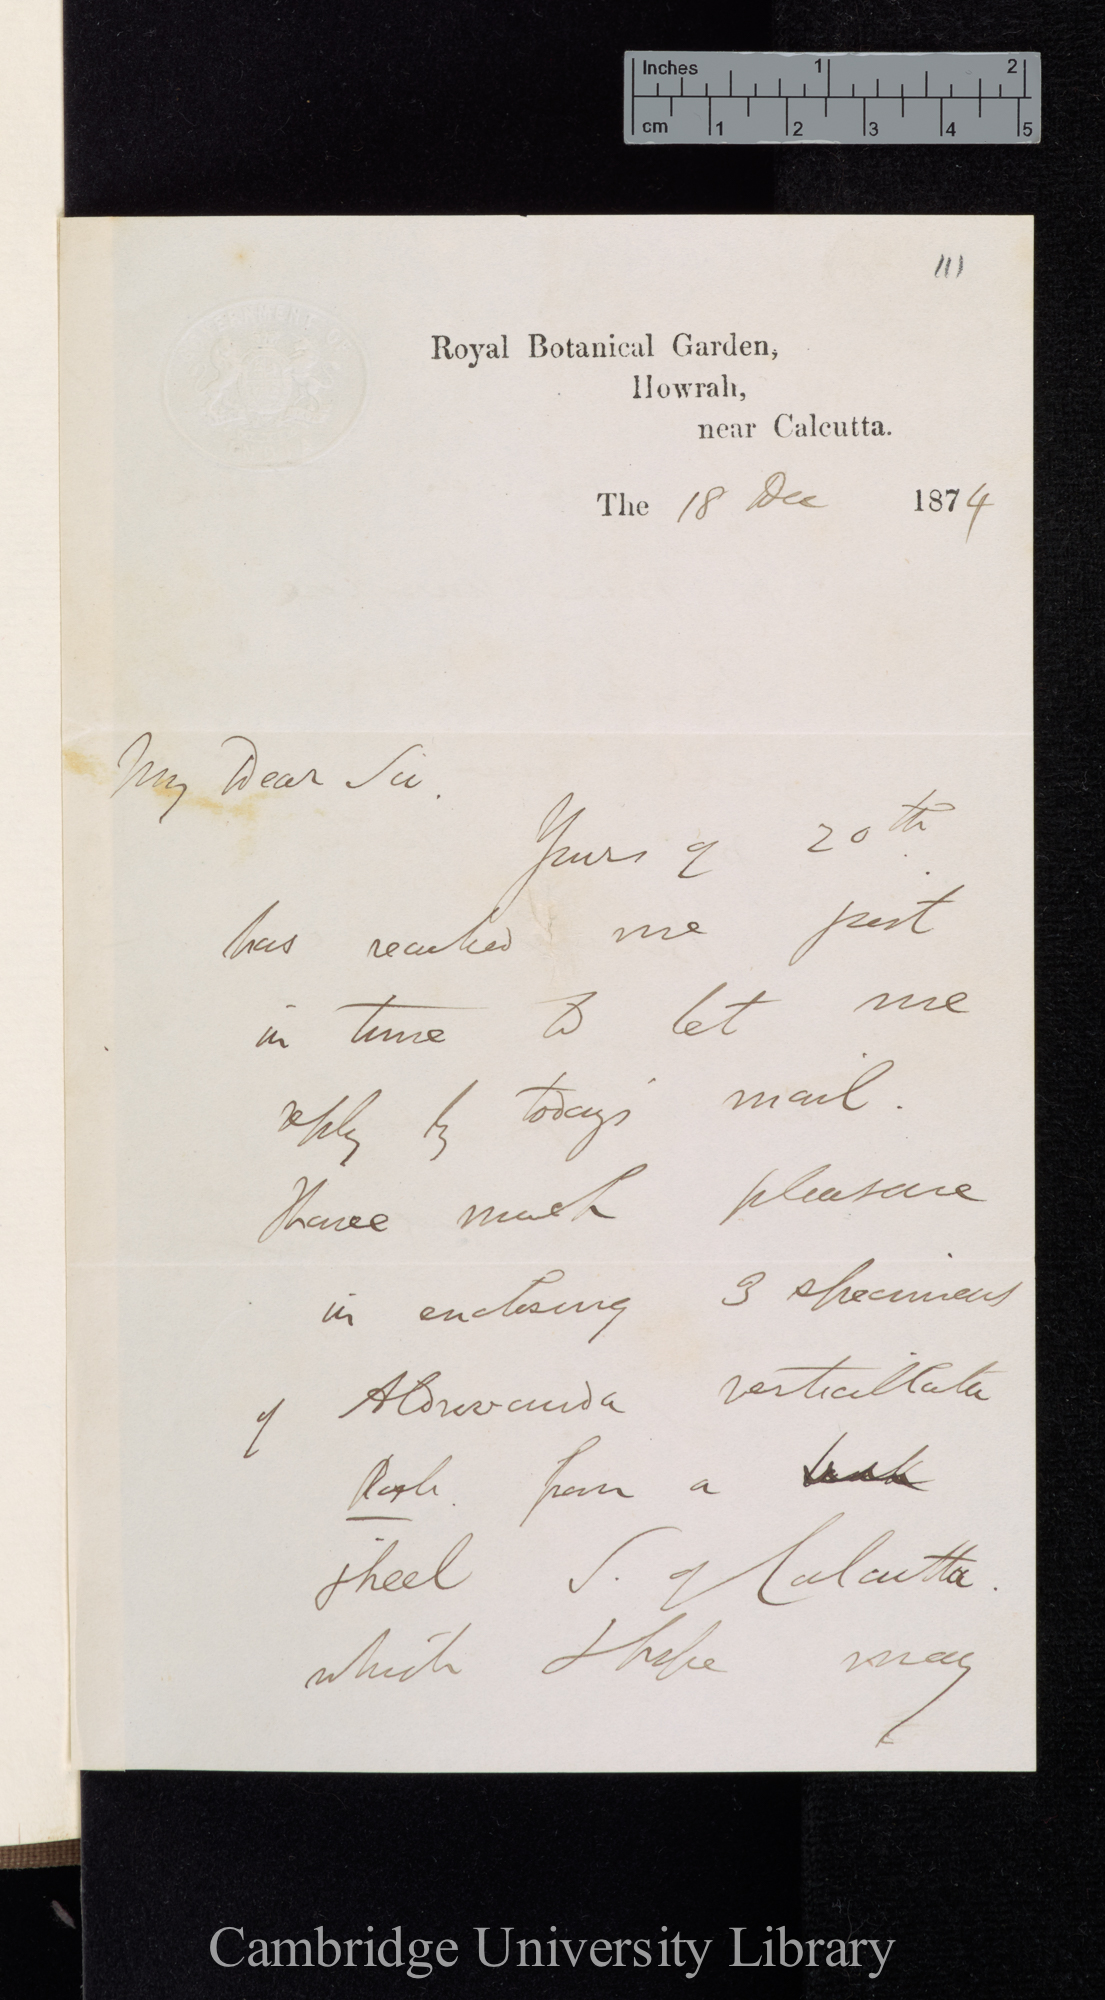 Inches 1 2
cm 1 2 3 4 5
111
GOVERNMENT OF
Royal Botanical Garden,
Howrah,
near Calcutta.
The 18 Dec 1874
My Dear Sir.
Yours of 20th
has reached me just
in time to let me
reply by today's mail.
I have much pleasure
in enclosing 3 specimens
of Aldrovanda verticillata
Roxb. from a tank
jheel S. of Calcutta.
which I hope may
Cambridge University Library